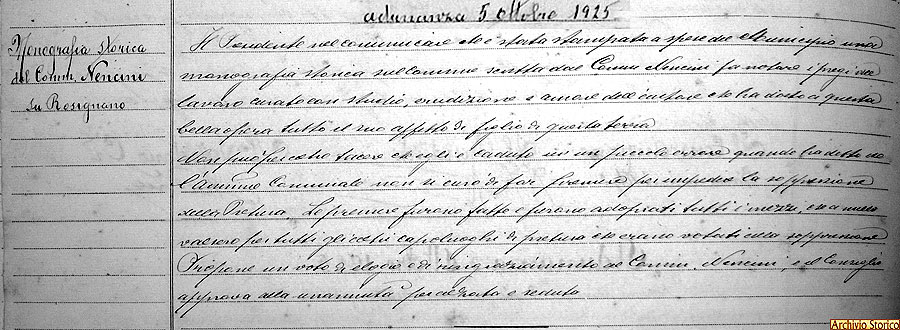 adunanza 5 Ottobre 1925
Monografia storica
del Comm. Nencini
su Rosignano
Il Presidente nel comunicare che è stata stampata a spese del Municipio una
monografia storica sul Comune scritta dal Comm Nencini fa notare i pregi del
lavoro curato con studio, erudizione e amore dell'autore che ha dato a questa
bella opera tutto il suo affetto di figlio di questa terra
Non può peraltro tacere che egli è caduto in un piccolo errore quando ha detto che
l'Ammine Comunale non si curò di far premure per impedire la soppressione
della Pretura. Le premure furono fatte e furono adoprati tutti i mezzi, che a nulla
valsero per tutti gli altri capoluoghi di pretura che erano votati alla soppressione
Propone un voto di elogio e di ringraziamento al Comm. Nencini, e il Consiglio
approva alla unanimità per alzata e seduta
Archivio Storico